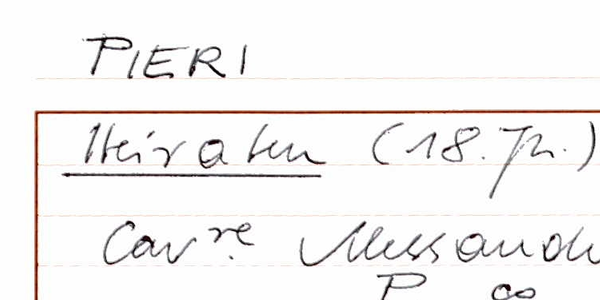 PIERI
Heiraten (18. Jh.)
Cav.re Alessandr
P